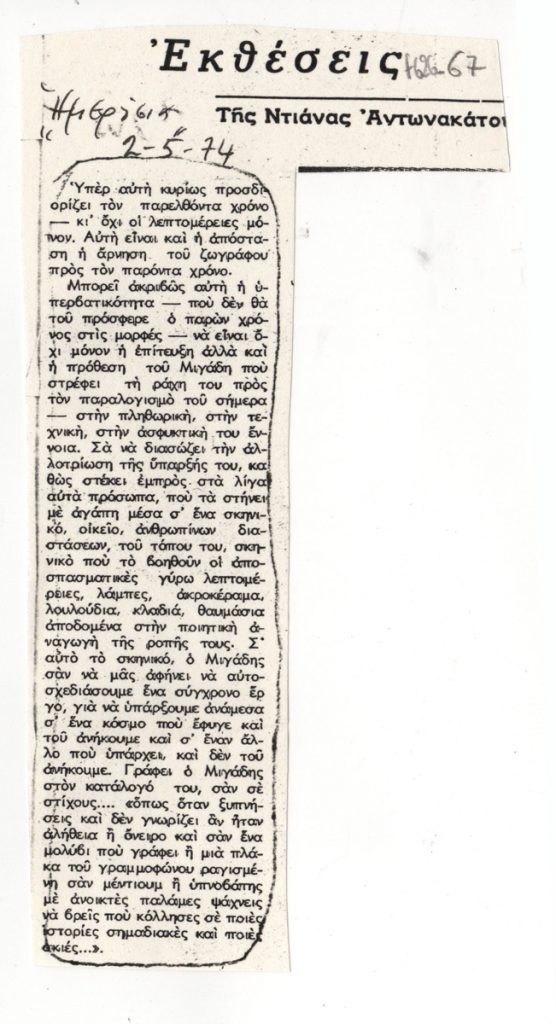 Ἐκθέσεις
67
Τῆς Ντιάνας Ἀντωνακάτου
"Ημερήσια"
2-5-74
Ὑπὲρ αὐτὴ κυρίως προσδι
ορίζει τὸν παρελθόντα χρόνο
— κι' ὄχι οἱ λεπτομέρειες μό
νον. Αὐτὴ εἶναι καὶ ἡ ἀπόστα
ση ἡ ἄρνηση τοῦ ζωγράφου
πρὸς τὸν παρόντα χρόνο.
Μπορεῖ ἀκριβῶς αὐτὴ ἡ ὑ
περβατικότητα — ποὺ δὲν θὰ
τοῦ πρόσφερε ὁ παρὼν χρό
νος στὶς μορφές — νὰ εἶναι ὄ
χι μόνον ἡ ἐπίτευξη ἀλλὰ καὶ
ἡ πρόθεση τοῦ Μιγάδη ποὺ
στρέφει τὴ ράχη του πρὸς
τὸν παραλογισμὸ τοῦ σήμερα
— στὴν πληθωρική, στὴν τε
χνική, στὴν ἀσφυκτική του ἔν
νοια. Σὰ νὰ διασώζει τὴν ἀλ
λοτρίωση τῆς ὕπαρξής του, κα
θὼς στέκει ἐμπρὸς στὰ λίγα
αὐτὰ πρόσωπα, ποὺ τὰ στήνει
μὲ ἀγάπη μέσα σ' ἕνα σκηνι
κό, οἰκεῖο, ἀνθρωπίνων δια
στάσεων, τοῦ τόπου του, σκη
νικὸ ποὺ τὸ βοηθοῦν οἱ ἀπο
σπασματικὲς γύρω λεπτομέ
ρειες, λάμπες, ἀκροκέραμα,
λουλούδια, κλαδιά, θαυμάσια
ἀποδομένα στὴν ποιητικὴ ἀ
ναγωγὴ τῆς ροπῆς τους. Σ'
αὐτὸ τὸ σκηνικό, ὁ Μιγάδης
σὰν νὰ μᾶς ἀφήνει νὰ αὐτο
σχεδιάσουμε ἕνα σύγχρονο ἔρ
γο, γιὰ νὰ ὑπάρξουμε ἀνάμεσα
σ' ἕνα κόσμο ποὺ ἔφυγε καὶ
τοῦ ἀνήκουμε καὶ σ' ἕναν ἄλ
λο ποὺ ὑπάρχει, καὶ δὲν τοῦ
ἀνήκουμε. Γράφει ὁ Μιγάδης
στὸν κατάλογό του, σὰν σὲ
στίχους.... «ὅπως ὅταν ξυπνή
σεις καὶ δὲν γνωρίζει ἂν ἦταν
ἀλήθεια ἢ ὄνειρο καὶ σὰν ἕνα
μολύβι ποὺ γράφει ἢ μιὰ πλά
κα τοῦ γραμμοφώνου ραγισμέ
νη σὰν μέντιουμ ἢ ὑπνοβάτης
μὲ ἀνοικτὲς παλάμες ψάχνεις
νὰ βρεῖς ποὺ κόλλησες σὲ ποιὲς
ἱστορίες σημαδιακὲς καὶ ποιὲς
σκιές...».